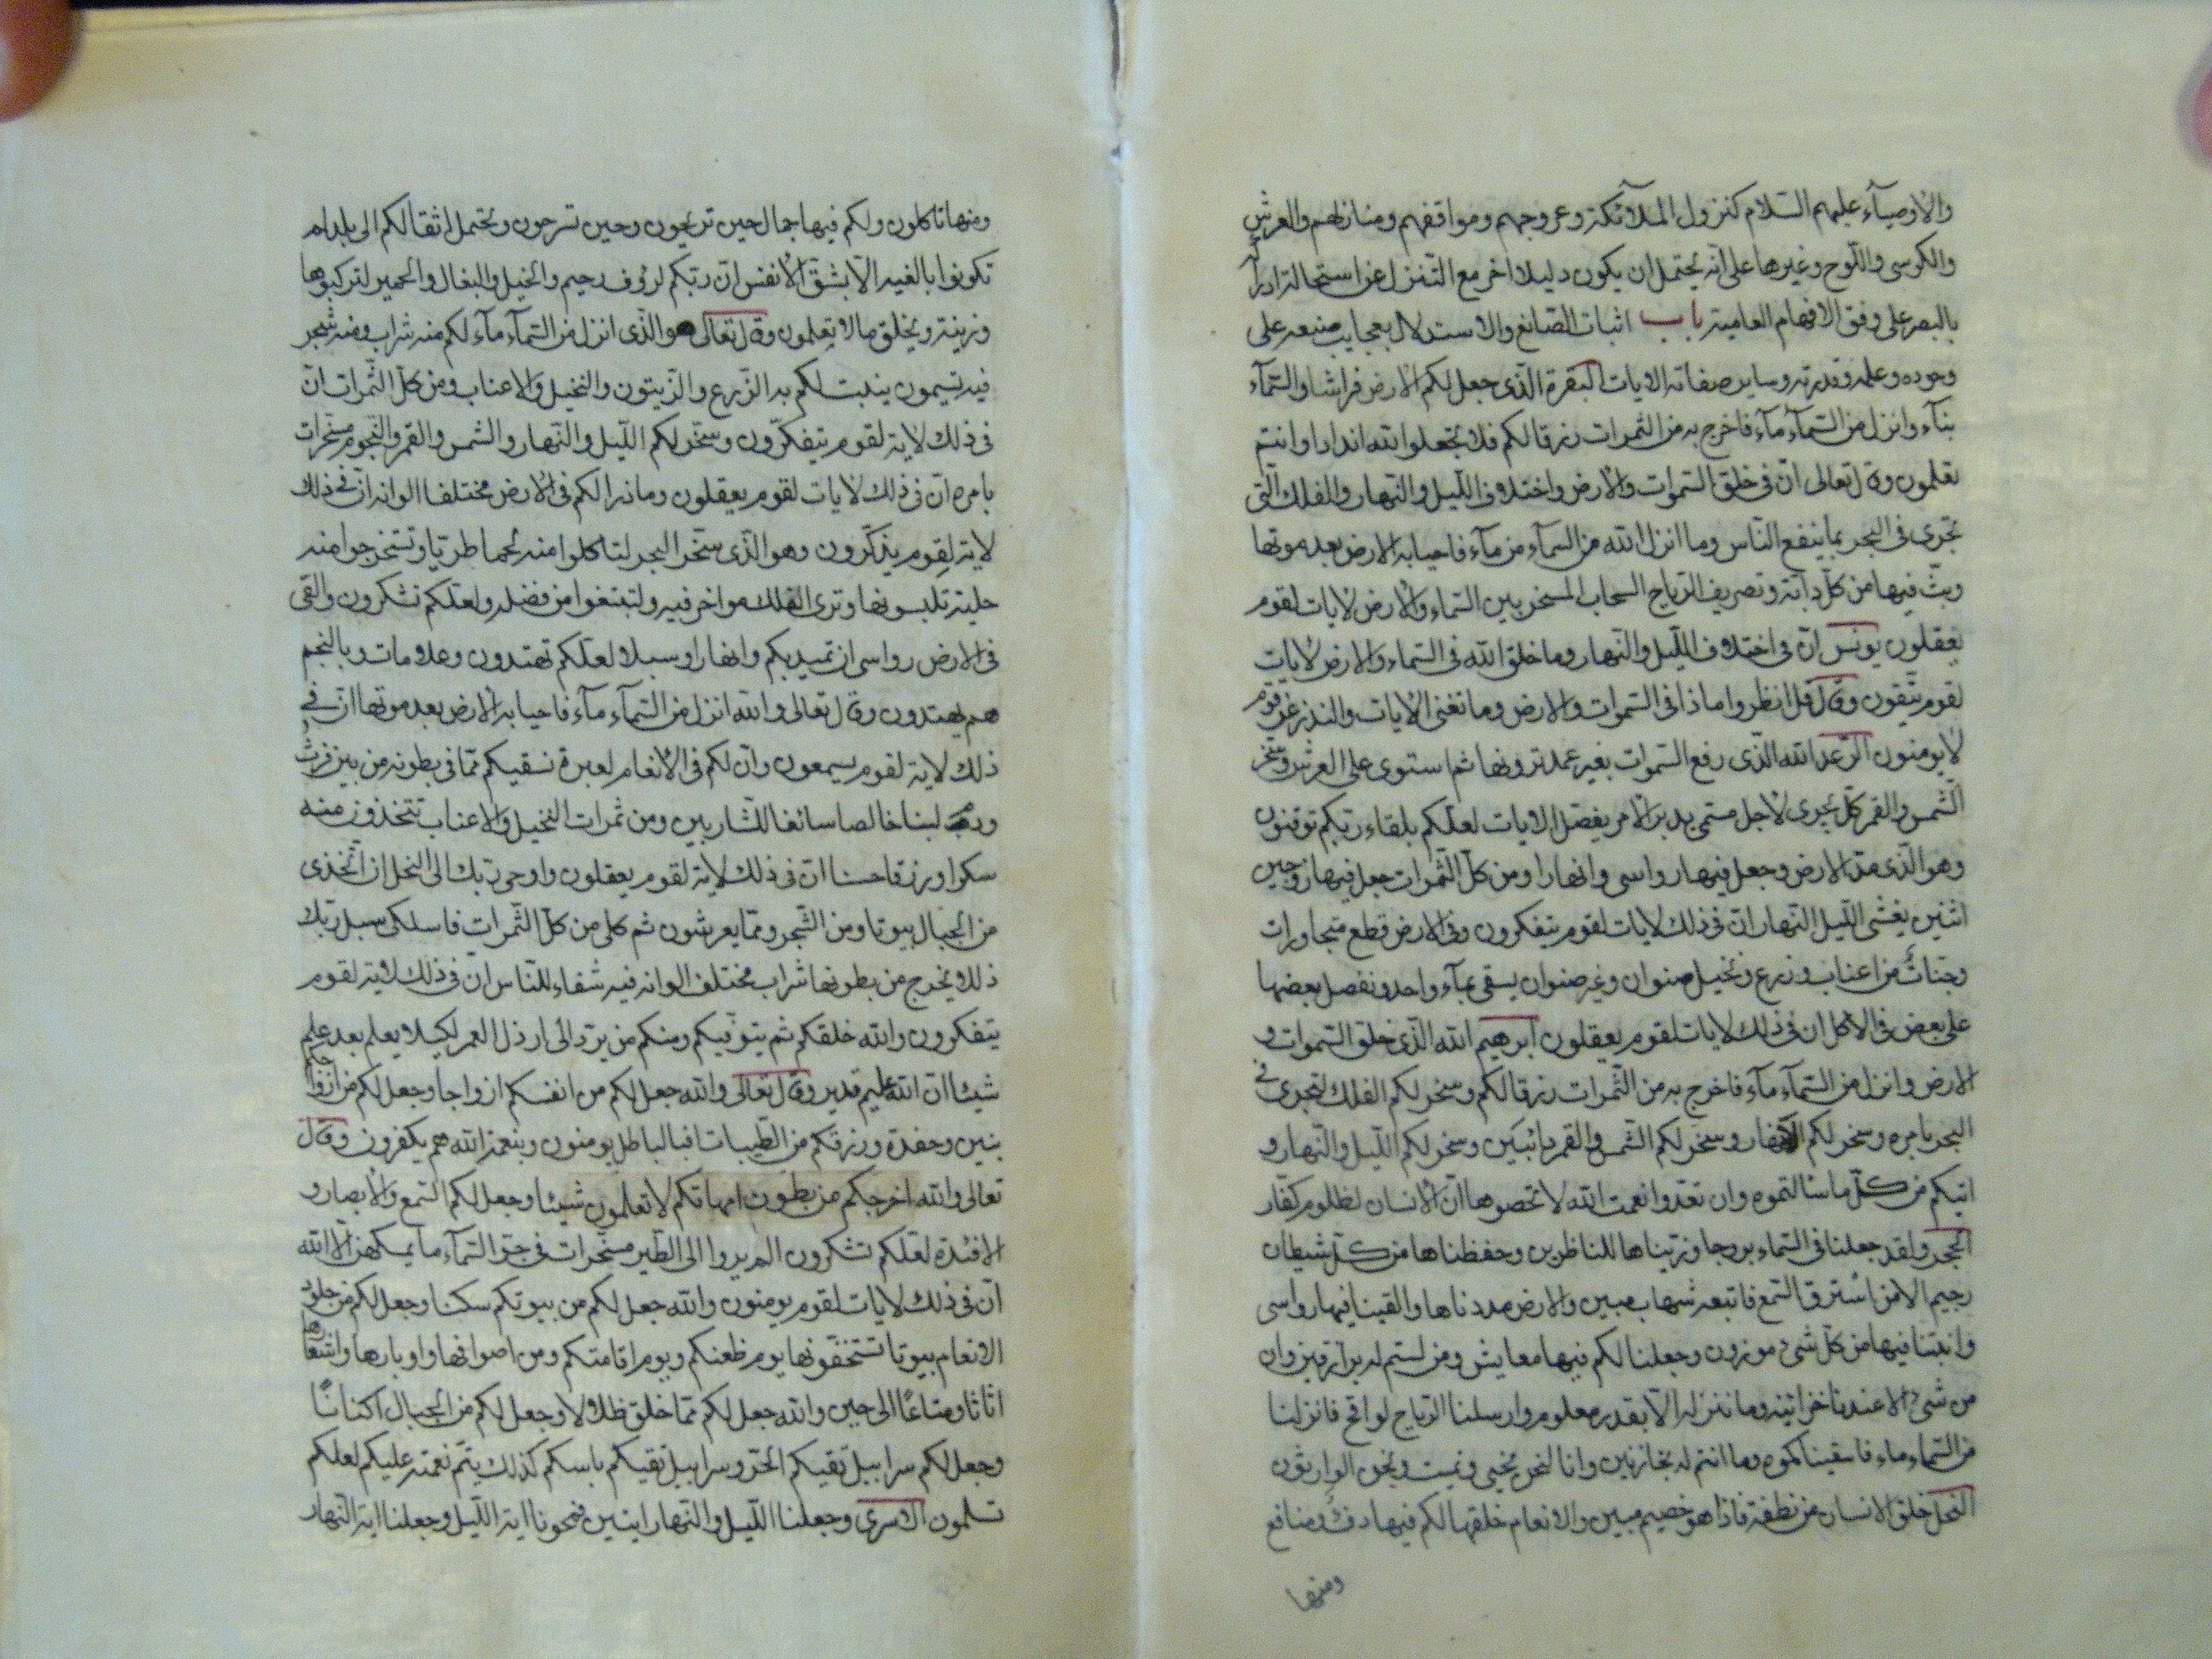 والاوصيآء عليهم السّلام كنزول الملآئكة وعروجهم ومواقفهم ومنازلهم والعرش
والكرسى واللّوح وغيرها على انّه يحتمل ان يكون دليلا اخر مع التّنزل عن استحالة ادراكه
بالبصر على وفق الافهام العامية باب اثبات الصّانع والاستدلال بعجايب صنعه على
وجوده وعلمه وقدرته وساير صفاته الايات البقرة الّذى جعل لكم الارض فراشا والسّمآء
بنآء وانزل من السّمآء مآء فاخرج به من الثّمرات رزقا لكم فلا تجعلوا لله اندادا وانتم
تعلمون وقال تعالى انّ فى خلق السّموات والارض واختلاف اللّيل والنّهار والفلك الّتى
تجرى فى البحر بما ينفع النّاس وما انزل الله من السمآء من مآء فاحيا به الارض بعد موتها
وبثّ فيها من كلّ دابّة وتصريف الرّياح السحاب المسخر بين السّماء والارض لايات لقوم
يعقلون يونس انّ فى اختلاف اللّيل والنّهار وما خلق الله فى السّماء والارض لايات
لقوم يتّقون وقال قل انظروا ماذا فى السّموات والارض وما تغنى الايات والنذر عن قوم
لا يومنون الرّعد الله الّذى رفع السّموات بغير عمد ترونها ثم استوى على العرش وسخّر
الشّمس والقمر كلّ يجرى لاجل مسمّى يدبر الامر يفصّل الايات لعلّكم بلقاء ربّكم توقنون
وهو الّذى مدّ الارض وجعل فيها رواسى وانهارا ومن كلّ الثّمرات جعل فيها زوجين
اثنين يغشى اللّيل النّهار انّ فى ذلك لايات لقوم يتفكرون وفى الارض قطع متجاورات
وجنّاتٌ من اعناب وزرع ونخيل صنوان وغير صنوان يسقى بمآء واحد ونفصل بعضها
على بعض فى الاكل ان فى ذلك لايات لقوم يعقلون ابرهيم الله الّذى خلق السّموات و
الارض وانزل من السّمآء مآء فاخرج به من الثّمرات رزقا لكم وسخر لكم الفلك لتجرى فى
البحر بامره وسخر لكم الانهار وسخّر لكم الشّمس والقمر دائبين وسخر لكم اللّيل والنّهار و
اتيكم من كلّ ما سالتموه وان تعدّوا نعمت الله لا تحصوها انّ الانسان لظلوم كفّار
الحجر ولقد جعلنا فى السّماء بروجا وزيّناها للناظرين وحفظناها من كلّ شيطان
رجيم الا من استرق السّمع فاتبعه شهاب مبين والارض مددناها والقينا فيها رواسى
وانبتنا فيها من كلّ شىء موزون وجعلنا لكم فيها معايش ومن لستم له برازقين وان
من شىء الا عندنا خزائنه وما ننزله الّا بقدر معلوم وارسلنا الرّياح لواقح فانزلنا
من السّماء ماء فاسقيناكموه وما انتم له بخازنين وانا لنحن نحيى ونميت ونحن الوارثون
النحل خلق الانسان من نطفة فاذا هو خصيم مبين والانعام خلقها لكم فيها دفء ومنافع
ومنها
ومنها تاكلون ولكم فيها جمال حين تريحون وحين تسرحون وتحمل اثقالكم الى بلد لم
تكونوا بالغيه الّا بشقّ الانفس انّ ربّكم لرؤف رحيم والخيل والبغال والحمير لتركبوها
وزينة ويخلق ما لا تعلمون وقال تعالى هو الّذى انزل من السّمآء مآء لكم منه شراب ومنه شجر
فيه تسيمون ينبت لكم به الزّرع والزّيتون والنخيل والاعناب ومن كلّ الثّمرات انّ
فى ذلك لاية لقوم يتفكّرون وسخّر لكم اللّيل والنّهار والشمس والقمر والنّجوم مسخّرات
بامره انّ فى ذلك لايات لقوم يعقلون وما ذرا لكم فى الارض مختلفا الوانه انّ فى ذلك
لاية لقوم يذكّرون وهو الّذى سخّر البحر لتاكلوا منه لحما طريّا وتستخرجوا منه
حلية تلبسونها وترى الفلك مواخر فيه ولتبتغوا من فضله ولعلّكم تشكرون والقى
فى الارض رواسى ان تميد بكم وانهارا وسبلا لعلّكم تهتدون وعلامات وبالنجم
هم يهتدون وقال تعالى والله انزل من السّمآء مآء فاحيا به الارض بعد موتها انّ فى
ذلك لاية لقوم يسمعون وانّ لكم فى الانعام لعبرة نسقيكم ممّا فى بطونه من بين فرث
ودم لبنا خالصا سائغا للشّاربين ومن ثمرات النخيل والاعناب تتخذون منه
سكرا ورزقا حسنا انّ فى ذلك لاية لقوم يعقلون واوحى ربّك الى النحل ان اتّخذى
من الجبال بيوتا ومن الشّجر وممّا يعرشون ثم كلى من كلّ الثّمرات فاسلكى سبل ربّك
ذللا يخرج من بطونها شراب مختلف الوانه فيه شفاء للنّاس انّ فى ذلك لاية لقوم
يتفكرون والله خلقكم ثم يتوفّيكم ومنكم من يردّ الى ارذل العمر لكيلا يعلم بعد علم
شيئا انّ الله عليم قدير وقال تعالى والله جعل لكم من انفسكم ازواجا وجعل لكم من ازواجكم
بنين وحفدة ورزقكم من الطّيبات افبالباطل يومنون وبنعمة الله هم يكفرون وقال
تعالى والله اخرجكم من بطون امهاتكم لا تعلمون شيئا وجعل لكم السّمع والابصار و
الافئدة لعلّكم تشكرون الم يروا الى الطّير مسخّرات فى جوّ السّمآء ما يمسكهنّ الّا الله
انّ فى ذلك لايات لقوم يومنون والله جعل لكم من بيوتكم سكنا وجعل لكم من جلود
الانعام بيوتا تستخفّونها يوم ظعنكم ويوم اقامتكم ومن اصوافها واوبارها واشعارها
اثاثا ومتاعًا الى حين والله جعل لكم ممّا خلق ظلالا وجعل لكم من الجبال اكنانًا
وجعل لكم سرابيل تقيكم الحرّ وسرابيل تقيكم باسكم كذلك يتمّ نعمته عليكم لعلكم
تسلمون الاسرى وجعلنا اللّيل والنّهار ايتين فمحونا اية اللّيل وجعلنا اية النّهار